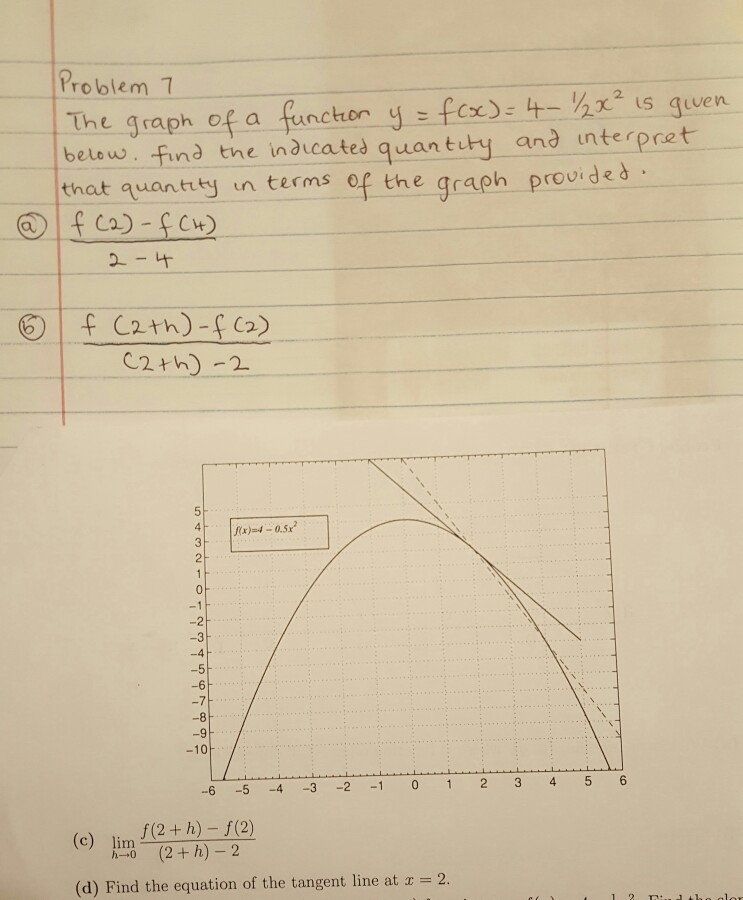 Problem 7
The graph of a function y = f(x) = 4 - ½x² is given
below. find the indicated quantity and interpret
that quantity in terms of the graph provided.
(a) f(2) - f(4)
2 - 4
(b) f(2+h) - f(2)
(2+h) - 2
f(x)=4 - 0.5x²
5
4
3
2
1
0
-1
-2
-3
-4
-5
-6
-7
-8
-9
-10
-6 -5 -4 -3 -2 -1 0 1 2 3 4 5 6
(c) lim h→0 f(2 + h) - f(2)
(2 + h) - 2
(d) Find the equation of the tangent line at x = 2.